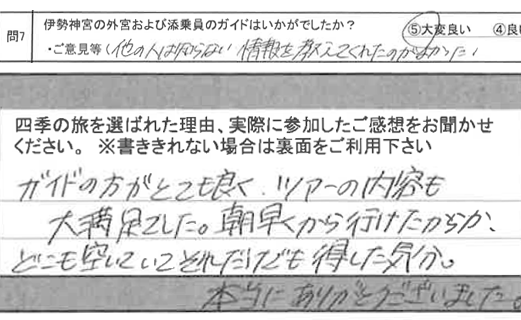 問7 伊勢神宮の外宮および添乗員のガイドはいかがでしたか？ ⑤大変良い ④良い
・ご意見等（他の人は知らない情報を教えてくれたのがよかった
四季の旅を選ばれた理由、実際に参加したご感想をお聞かせ
ください。 ※書ききれない場合は裏面をご利用下さい
ガイドの方がとても良く、ツアーの内容も
大満足でした。朝早くから行けたからか、
どこも空いていてそれだけでも得した気分。
本当にありがとうございました。